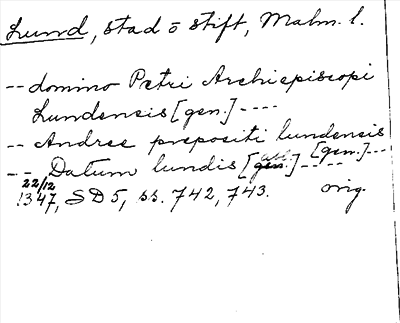 Lund, stad o stift, Malm. l.
-- domino Petri Archiepiscopi
Lundensis [gen.] ----
-- Andree prepositi lundensis
[gen.] ---
-- Datum lundis [abl.] -----
22/12
1347, SD 5, ss. 742, 743. orig.